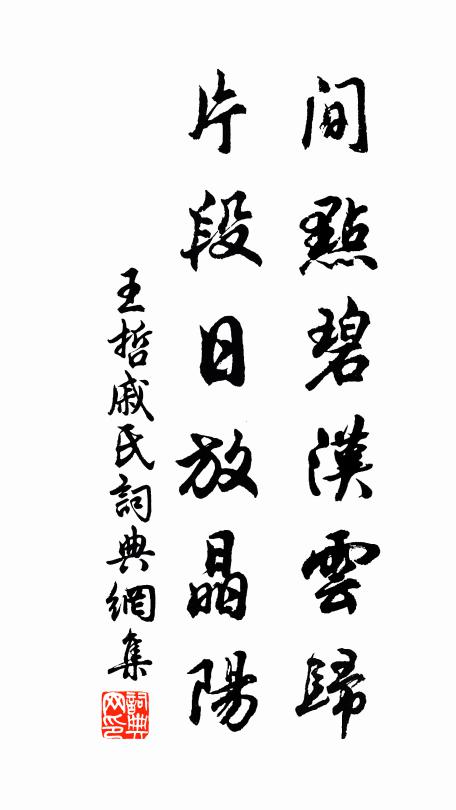 間點碧漢雲歸
片段日放晶陽
王哲戚氏詞典網集
詞典
网印